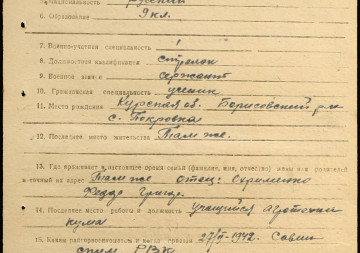 5. Национальность русский
6. Образование 9 кл.
7. Военно-учетная специальность 1
8. Должностная квалификация стрелок
9. Воинское звание сержант
10. Гражданская специальность ученик
11. Место рождения Курская об. Борисовский р-н
с. Покровка
12. Последнее место жительства Там же.
13. Где проживает в настоящее время семья (фамилия, имя, отчество)
и точный их адрес Там же отец: Охрименко
Федор Григор.
14. Последнее место работы и должность учащийся
15. Каким райгорвоенкоматом и когда призван 1942. Савин
ским РВК